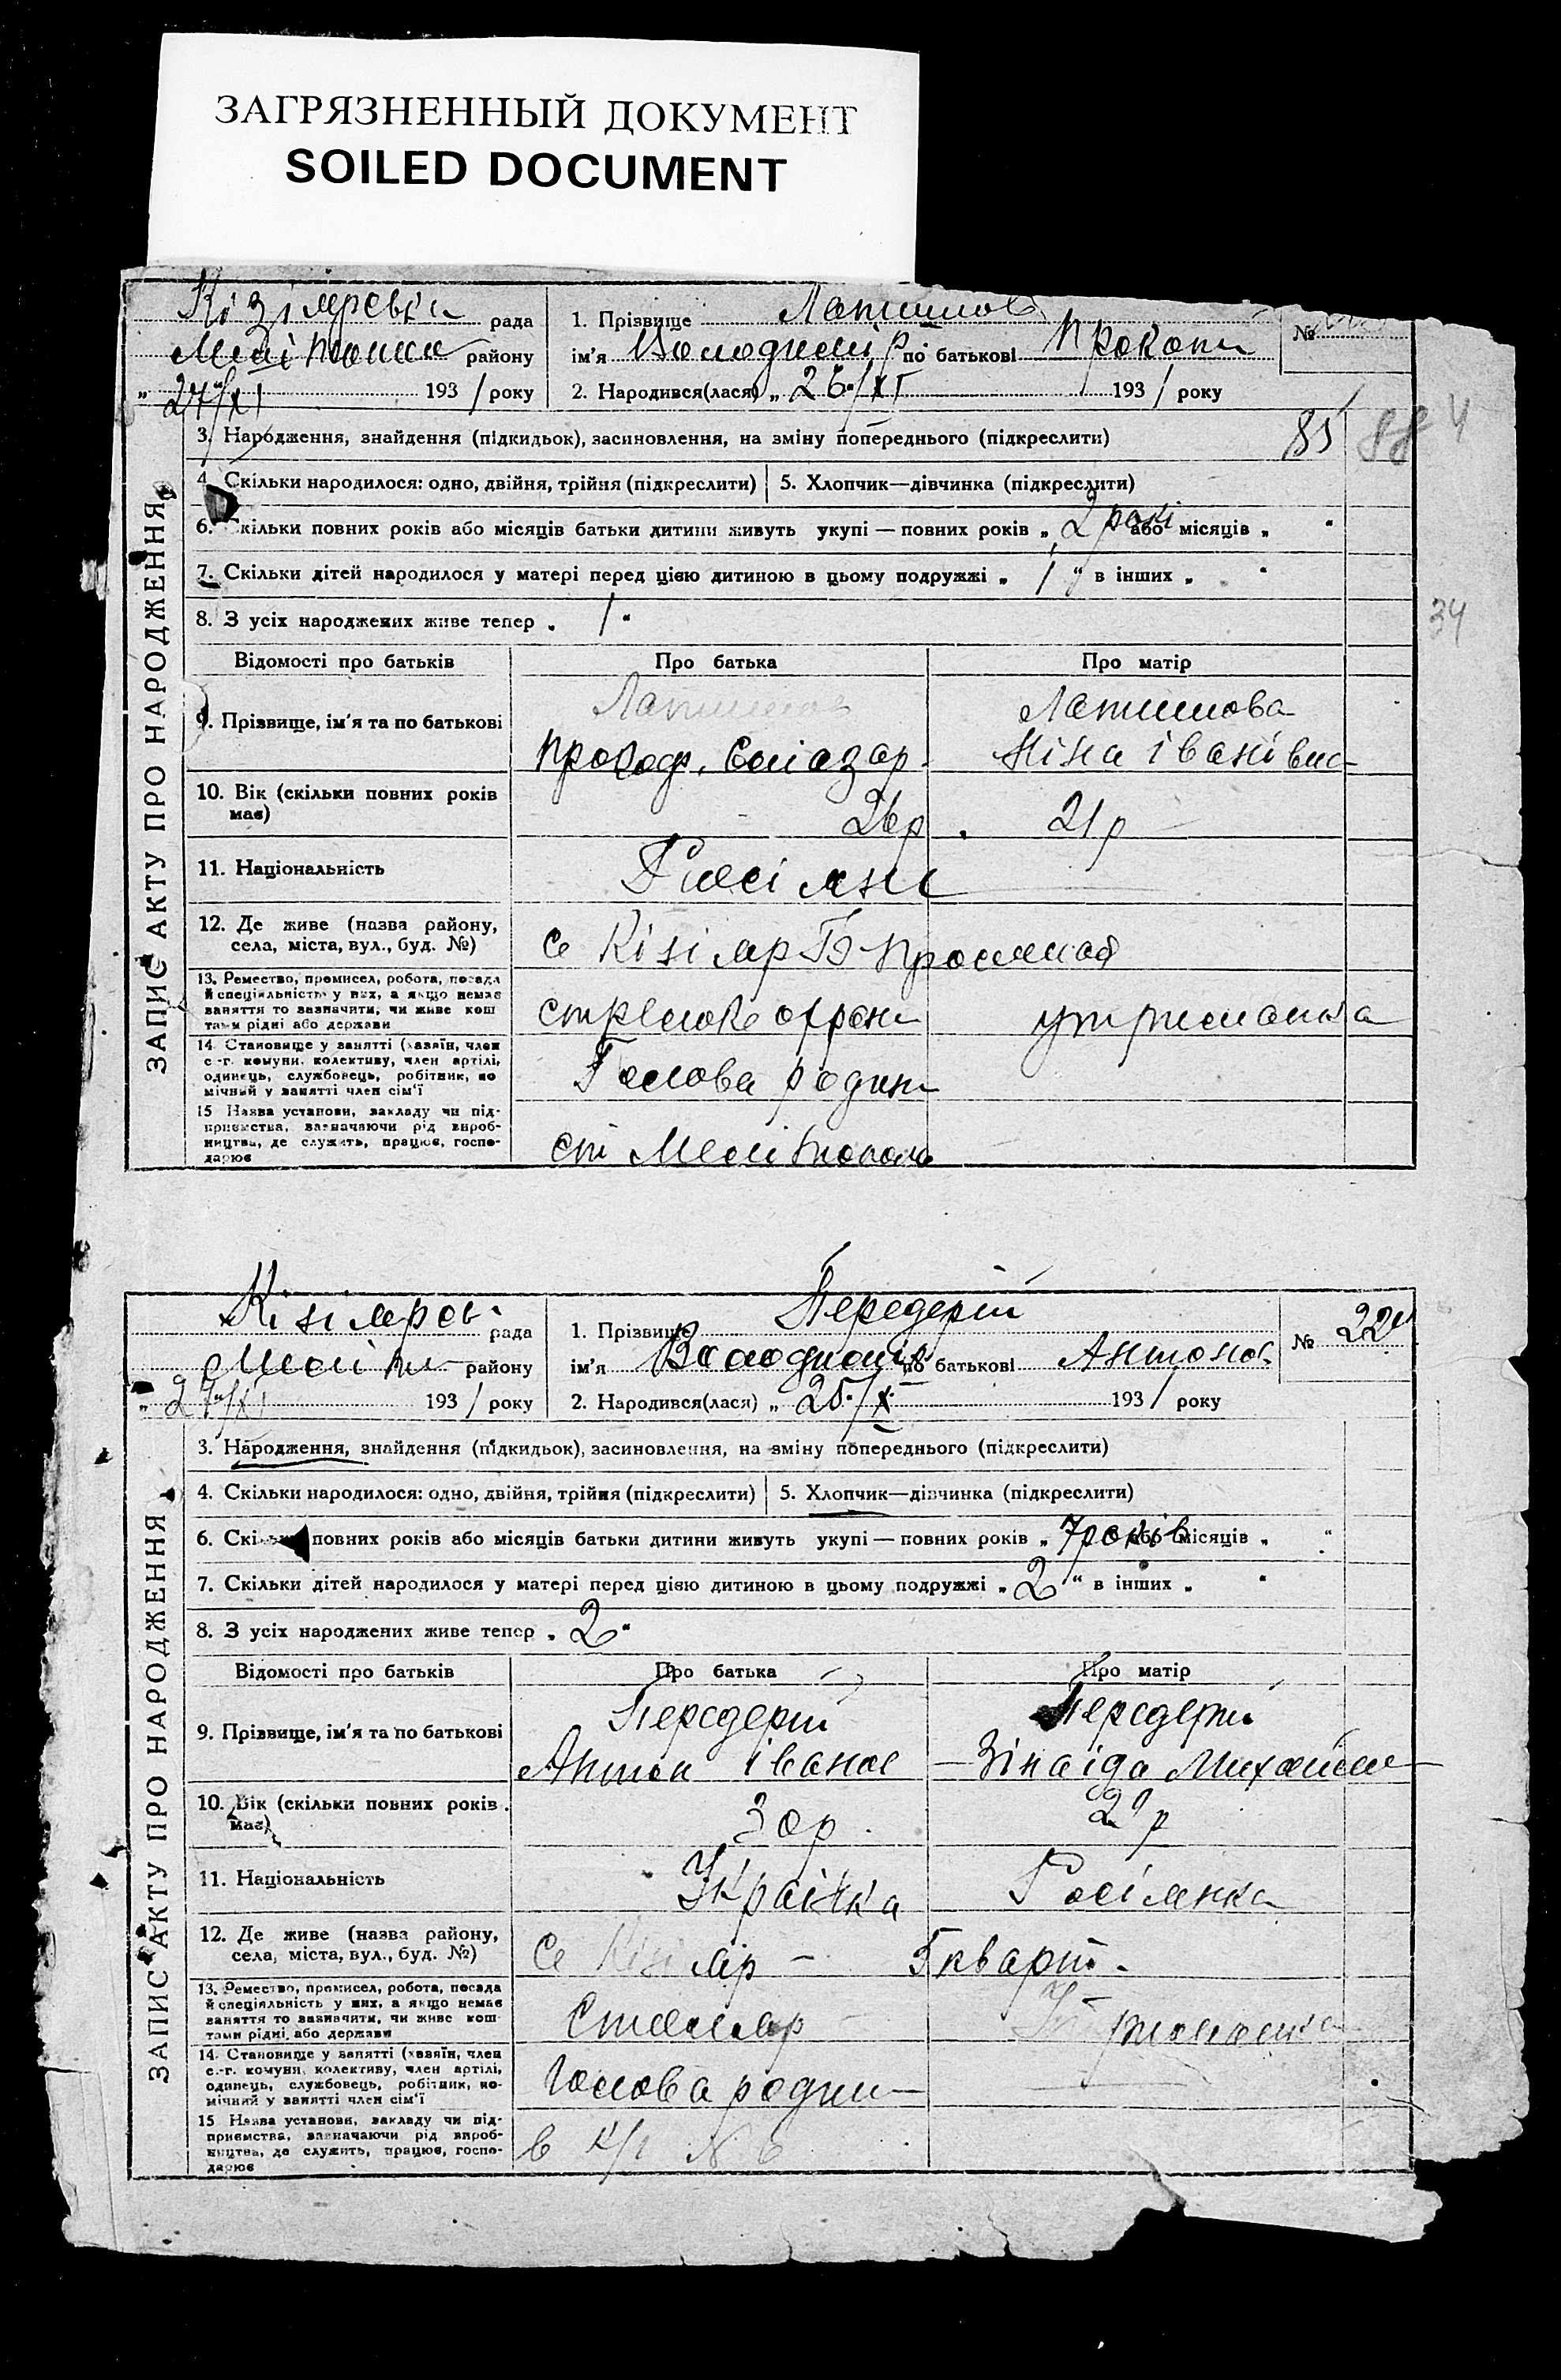 ЗАГРЯЗНЕННЫЙ ДОКУМЕНТ
SOILED DOCUMENT
рада
району
„27"/XI 193 1 року
1. Прізвище
ім'я Володимир по батькові Прокоп
№
2. Народився(лася) „ 26"/XI 193 1 року
ЗАПИС АКТУ ПРО НАРОДЖЕННЯ
3. Народження, знайдення (підкидьок), засиновлення, на зміну попереднього (підкреслити)
85
88
4
4. Скільки народилося: одно, двійня, трійня (підкреслити) 5. Хлопчик—дівчинка (підкреслити)
6. Скільки повних років або місяців батьки дитини живуть укупі — повних років „ 2 рокі або місяців „ "
7. Скільки дітей народилося у матері перед цією дитиною в цьому подружжі „ 1 " в інших „ "
8. З усіх народжених живе тепер „ 1 "
34
Відомості про батьків Про батька Про матір
9. Прізвище, ім'я та по батькові
Ніна Іванівна
10. Вік (скільки повних років
має)
26р. 21р
11. Національність
Росіяни
12. Де живе (назва району,
села, міста, вул., буд. №)
с Кізіяр
13. Ремество, промисел, робота, посада
й спеціяльність у них, а якщо немає
заняття то зазначити, чи живе кош
тами рідні або держави
утриманка
14. Становище у занятті (хазяїн, член
с.-г. комуни, колективу, член артілі,
одинець, службовець, робітник, по
мічний у занятті член сім'ї
Голова родини
15 Назва установи, закладу чи під-
приємства, зазначаючи рід вироб-
ництва, де служить, працює, госпо-
дарює
ст Мелітополь
рада
району
„27"/XI 193 1 року
1. Прізвище Передерій
ім'я Володимир по батькові Антонов.
№ 224
2. Народився(лася) „ 25"/X 193 1 року
ЗАПИС АКТУ ПРО НАРОДЖЕННЯ
3. Народження, знайдення (підкидьок), засиновлення, на зміну попереднього (підкреслити)
4. Скільки народилося: одно, двійня, трійня (підкреслити) 5. Хлопчик—дівчинка (підкреслити)
6. Скільки повних років або місяців батьки дитини живуть укупі — повних років „ 7 років або місяців „ "
7. Скільки дітей народилося у матері перед цією дитиною в цьому подружжі „ 2 " в інших „ "
8. З усіх народжених живе тепер „ 2 "
Відомості про батьків Про батька Про матір
9. Прізвище, ім'я та по батькові
Передерій Передерій
Антон Іванов Зінаіда Михайлов
10. Вік (скільки повних років
має)
30р. 29р
11. Національність
Украінка Росіянка
12. Де живе (назва району,
села, міста, вул., буд. №)
с Кізіяр — 5 кварт.
13. Ремество, промисел, робота, посада
й спеціяльність у них, а якщо немає
заняття то зазначити, чи живе кош
тами рідні або держави
Столяр Утриманка
14. Становище у занятті (хазяїн, член
с.-г. комуни, колективу, член артілі,
одинець, службовець, робітник, по
мічний у занятті член сім'ї
Голова родини
15 Назва установи, закладу чи під-
приємства, зазначаючи рід вироб-
ництва, де служить, працює, госпо-
дарює
в № 6